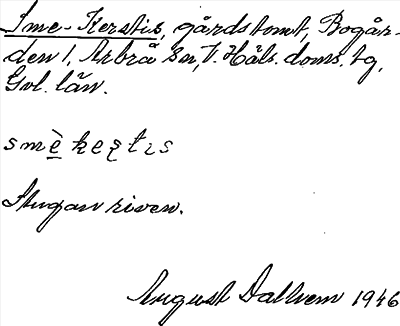 Sme-Kerstis, gårdstomt, Bogår-
den 1, Arbrå sn, V. Häls. doms. tg,
Gvl. län.
smè̱ keʂtɩs
Stugan riven.
August Dalhem 1946